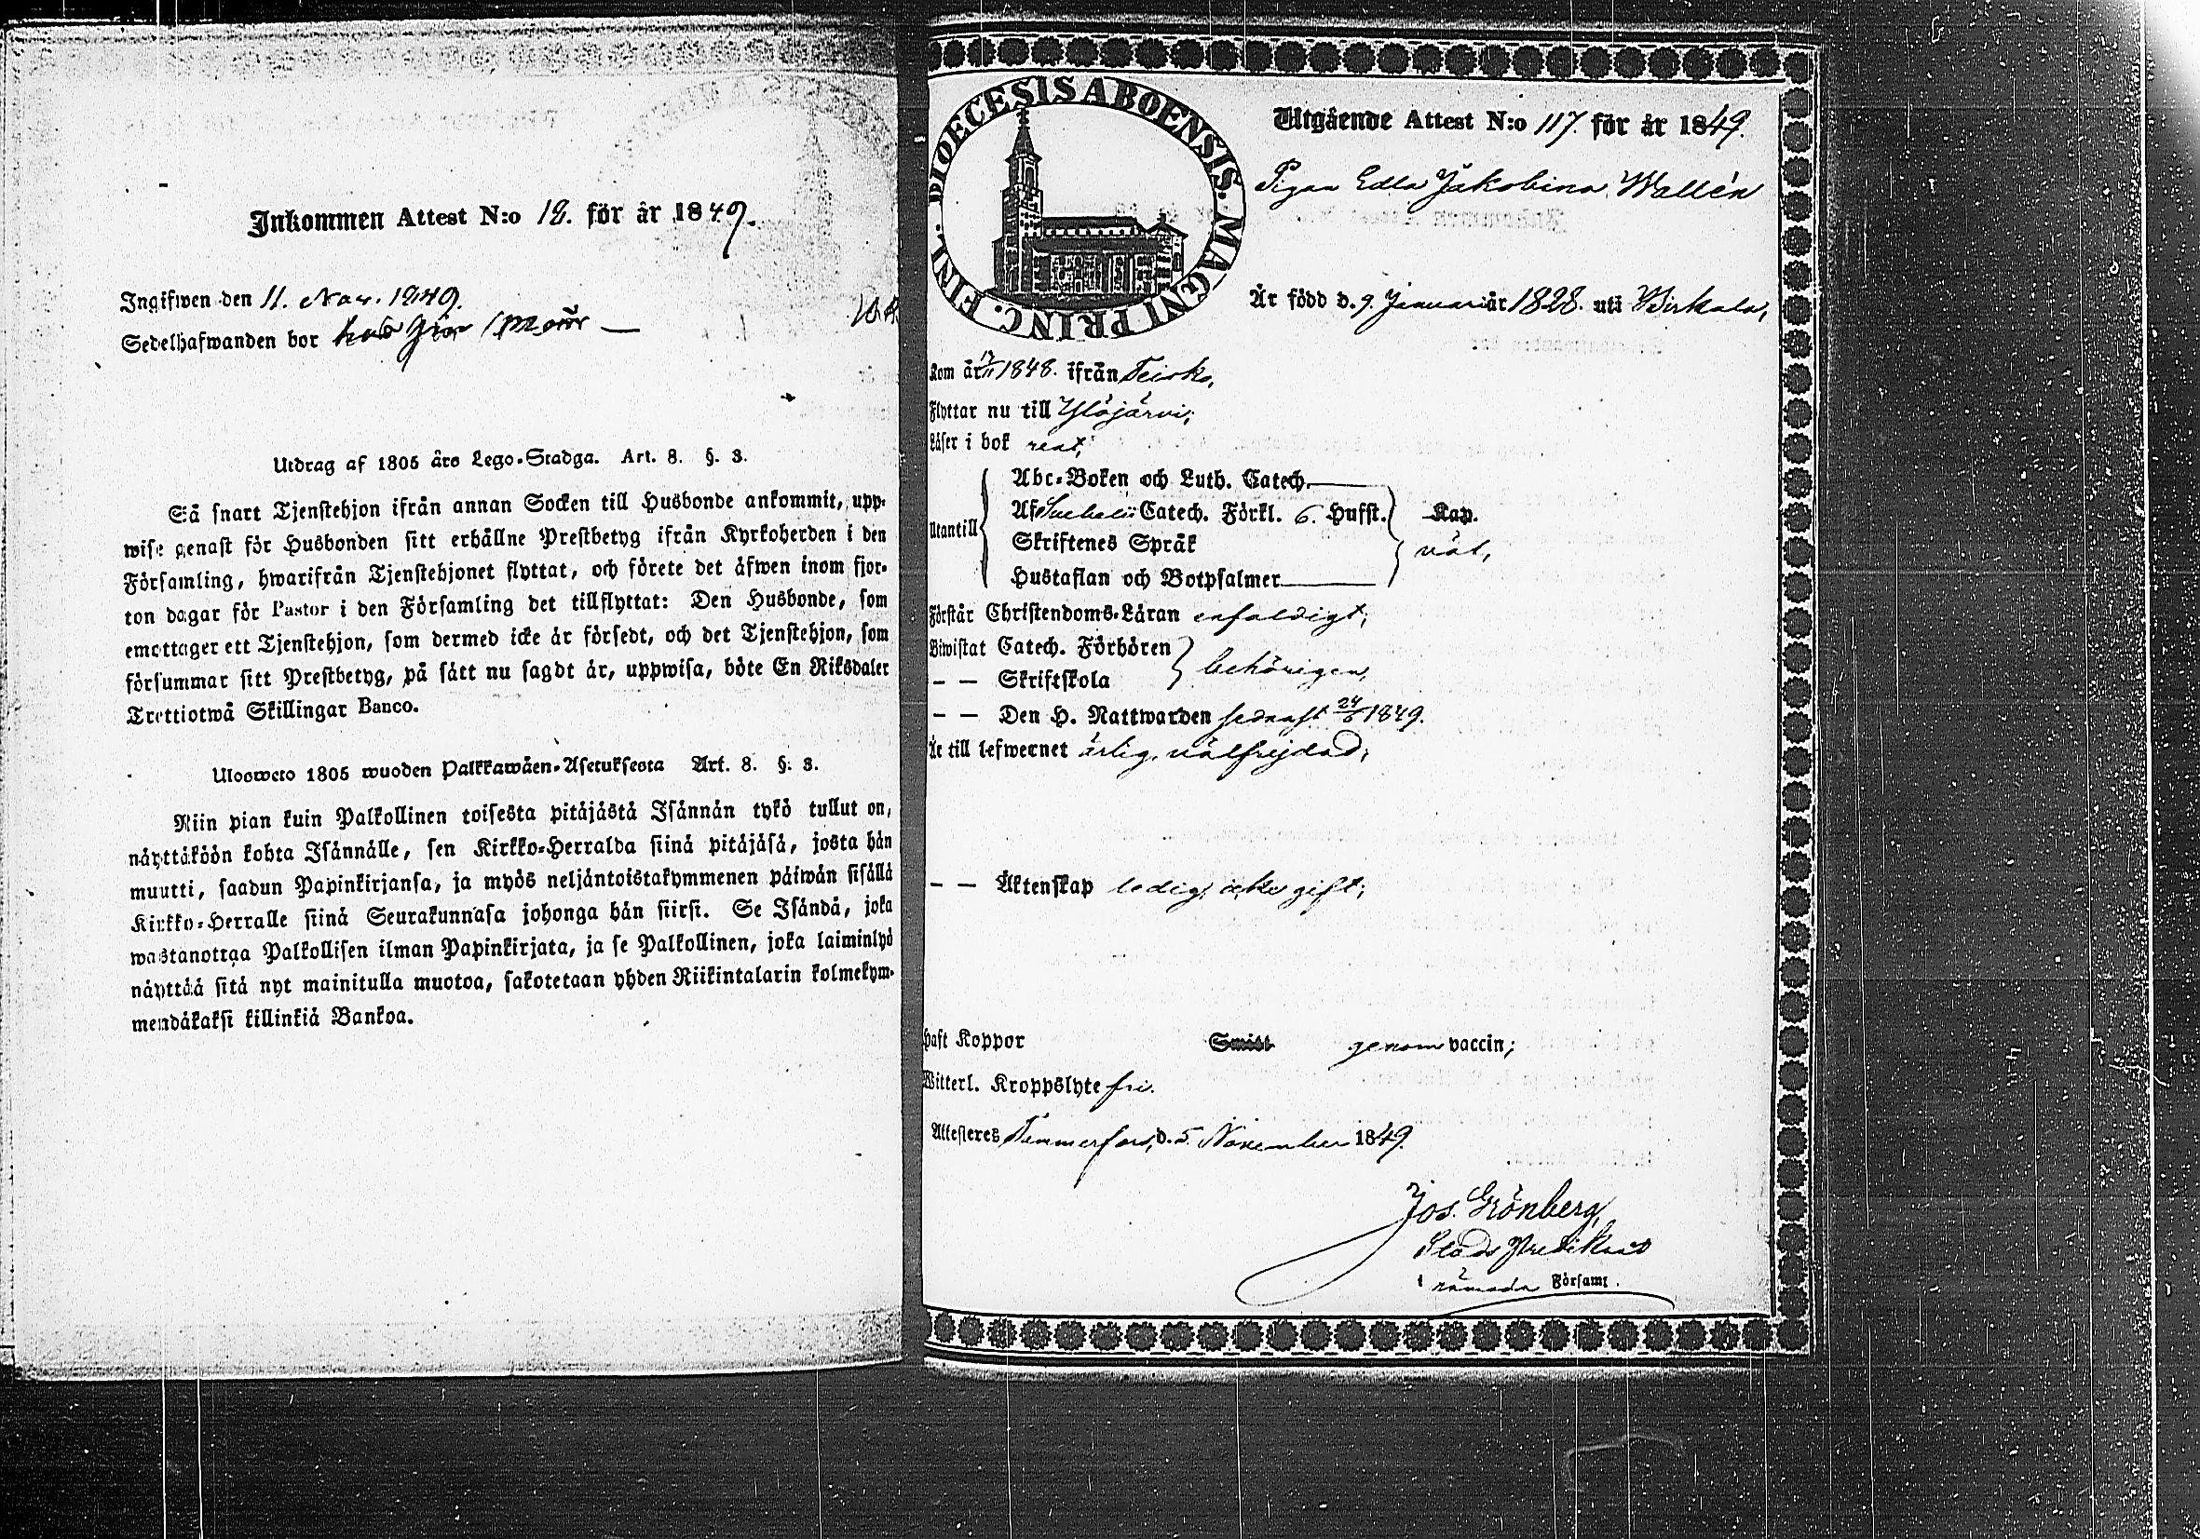 Inkommen Attest N:o 18. för år 1849.
Ingifwen den 11. Nov. 1849.
Sedelhafwanden bor hos
Utdrag af 1805 års Lego-Stadga. Art. 8. §. 3.
Så snart Tjenstehjon ifrån annan Socken till Husbonde ankommit, upp-
wise genast för Husbonden sitt erhållne Prestbetyg ifrån Kyrkoherden i den
Församling, hwarifrån Tjenstehjonet flyttat, och förete det åfwen inom fjor-
ton dagar för Pastor i den Församling det tillflyttat: Den Husbonde, som
emottager ett Tjenstehjon, som dermed icke är försedt, och det Tjenstehjon, som
försummar sitt Prestbetyg, på sått nu sagdt år, uppwisa, böte En Riksdaler
Trettiotwå Skillingar Banco.
Uloswcto 1805 wuoden Palkkawåen-Asetuksesta Art. 8. §. 3.
Niin pian kuin Palkollinen toisesta pitåjåstå Isånnån tykö tullut on,
nåyttåköön kohta Isånnålle, sen Kirkko-Herralda siinå pitåjåså, josta hån
muutti, saadun Papinkirjansa, ja myös neljåntoistakymmenen påiwån sisållå
Kirkko-Herralle siinå Seurakunnasa johonga hån siirsi. Se Isåndå, joka
wastanottaa Palkollisen ilman Papinkirjata, ja se Palkollinen, joka laiminlyö
nåyttåå sitå nyt mainitulla muotoa, sakotetaan yhden Riikintalarin kolmekym-
mendåkaksi killinkiå Bankoa.
DIOECESIS ABOENSIS. MAGNI PRINC. FINL.
Utgående Attest N:o 117. för år 1849.
Pigan Edla Jakobina Wallén
Är född d. 9. Januari år 1828. uti Birkala,
Kom år 17/11 1848. ifrån Teisko,
Flyttar nu till Ylöjärvi;
Läser i bok rent;
Utantill
Abc-Boken och Luth. Catech.
Af Svebelii Catech. Förkl. 6. Hufst. Kap.
Skriftenes Språk väl,
Hustaflan och Botpsalmer
Förstår Christendoms-Läran enfaldigt;
Biwistat Catech. Förhören
— — Skriftskola behörigen,
— — Den H. Nattwarden sednast 24/6 1849.
Är till lefwernet ärlig, välfrejdad;
— — Äktenskap ledig, icke gift;
Haft Koppor Smitt genom vaccin;
Witterl. Kroppslyte fri.
Attesteres Tammerfors, d. 5. November 1849.
Jos. Grönberg,
Stads Predikant
i nämnda Församl.